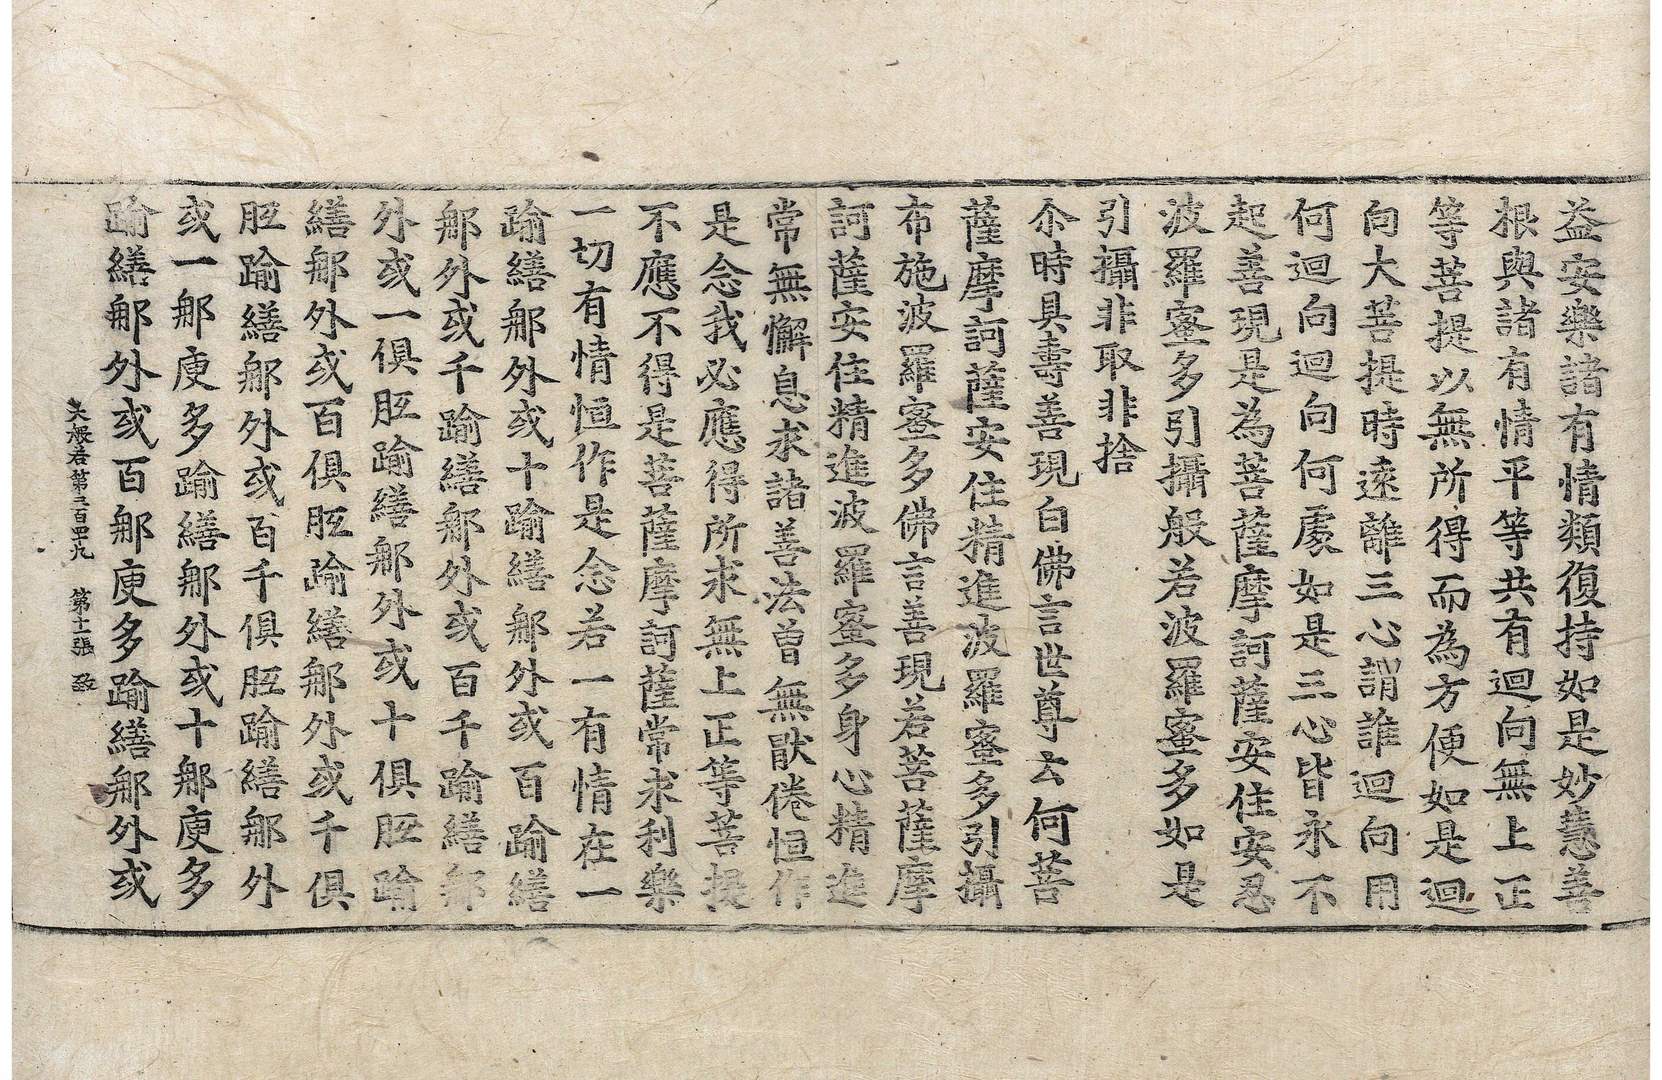 益安樂諸有情類復持如是妙慧善
根與諸有情平等共有迴向無上正
等菩提以無所得而為方便如是迴
向大菩提時遠離三心謂誰迴向用
何迴向迴向何處如是三心皆永不
起善現是為菩薩摩訶薩安住安忍
波羅蜜多引攝般若波羅蜜多如是
引攝非取非捨
尒時具壽善現白佛言世尊云何菩
薩摩訶薩安住精進波羅蜜多引攝
布施波羅蜜多佛言善現若菩薩摩
訶薩安住精進波羅蜜多身心精進
常無懈息求諸善法曾無猒倦恒作
是念我必應得所求無上正等菩提
不應不得是菩薩摩訶薩常求利樂
一切有情恒作是念若一有情在一
踰繕那外或十踰繕那外或百踰繕
那外或千踰繕那外或百千踰繕那
外或一俱胝踰繕那外或十俱胝踰
繕那外或百俱胝踰繕那外或千俱
胝踰繕那外或百千俱胝踰繕那外
或一那庾多踰繕那外或十那庾多
踰繕那外或百那庾多踰繕那外或
大般若第三百四九 第十一張 致